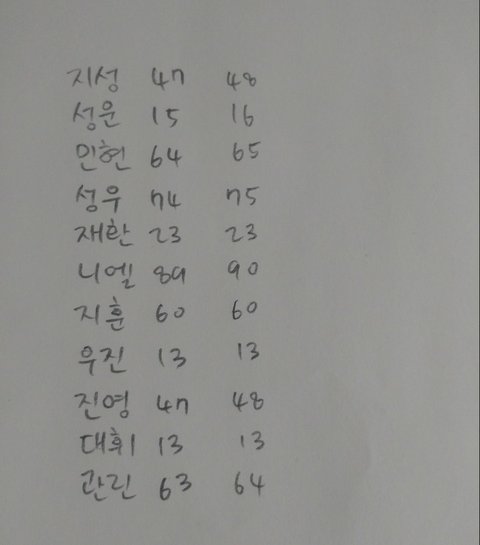 지성 47 48
성운 15 16
민현 64 65
성우 74 75
재환 23 23
니엘 89 90
지훈 60 60
우진 13 13
진영 47 48
대휘 13 13
관린 63 64